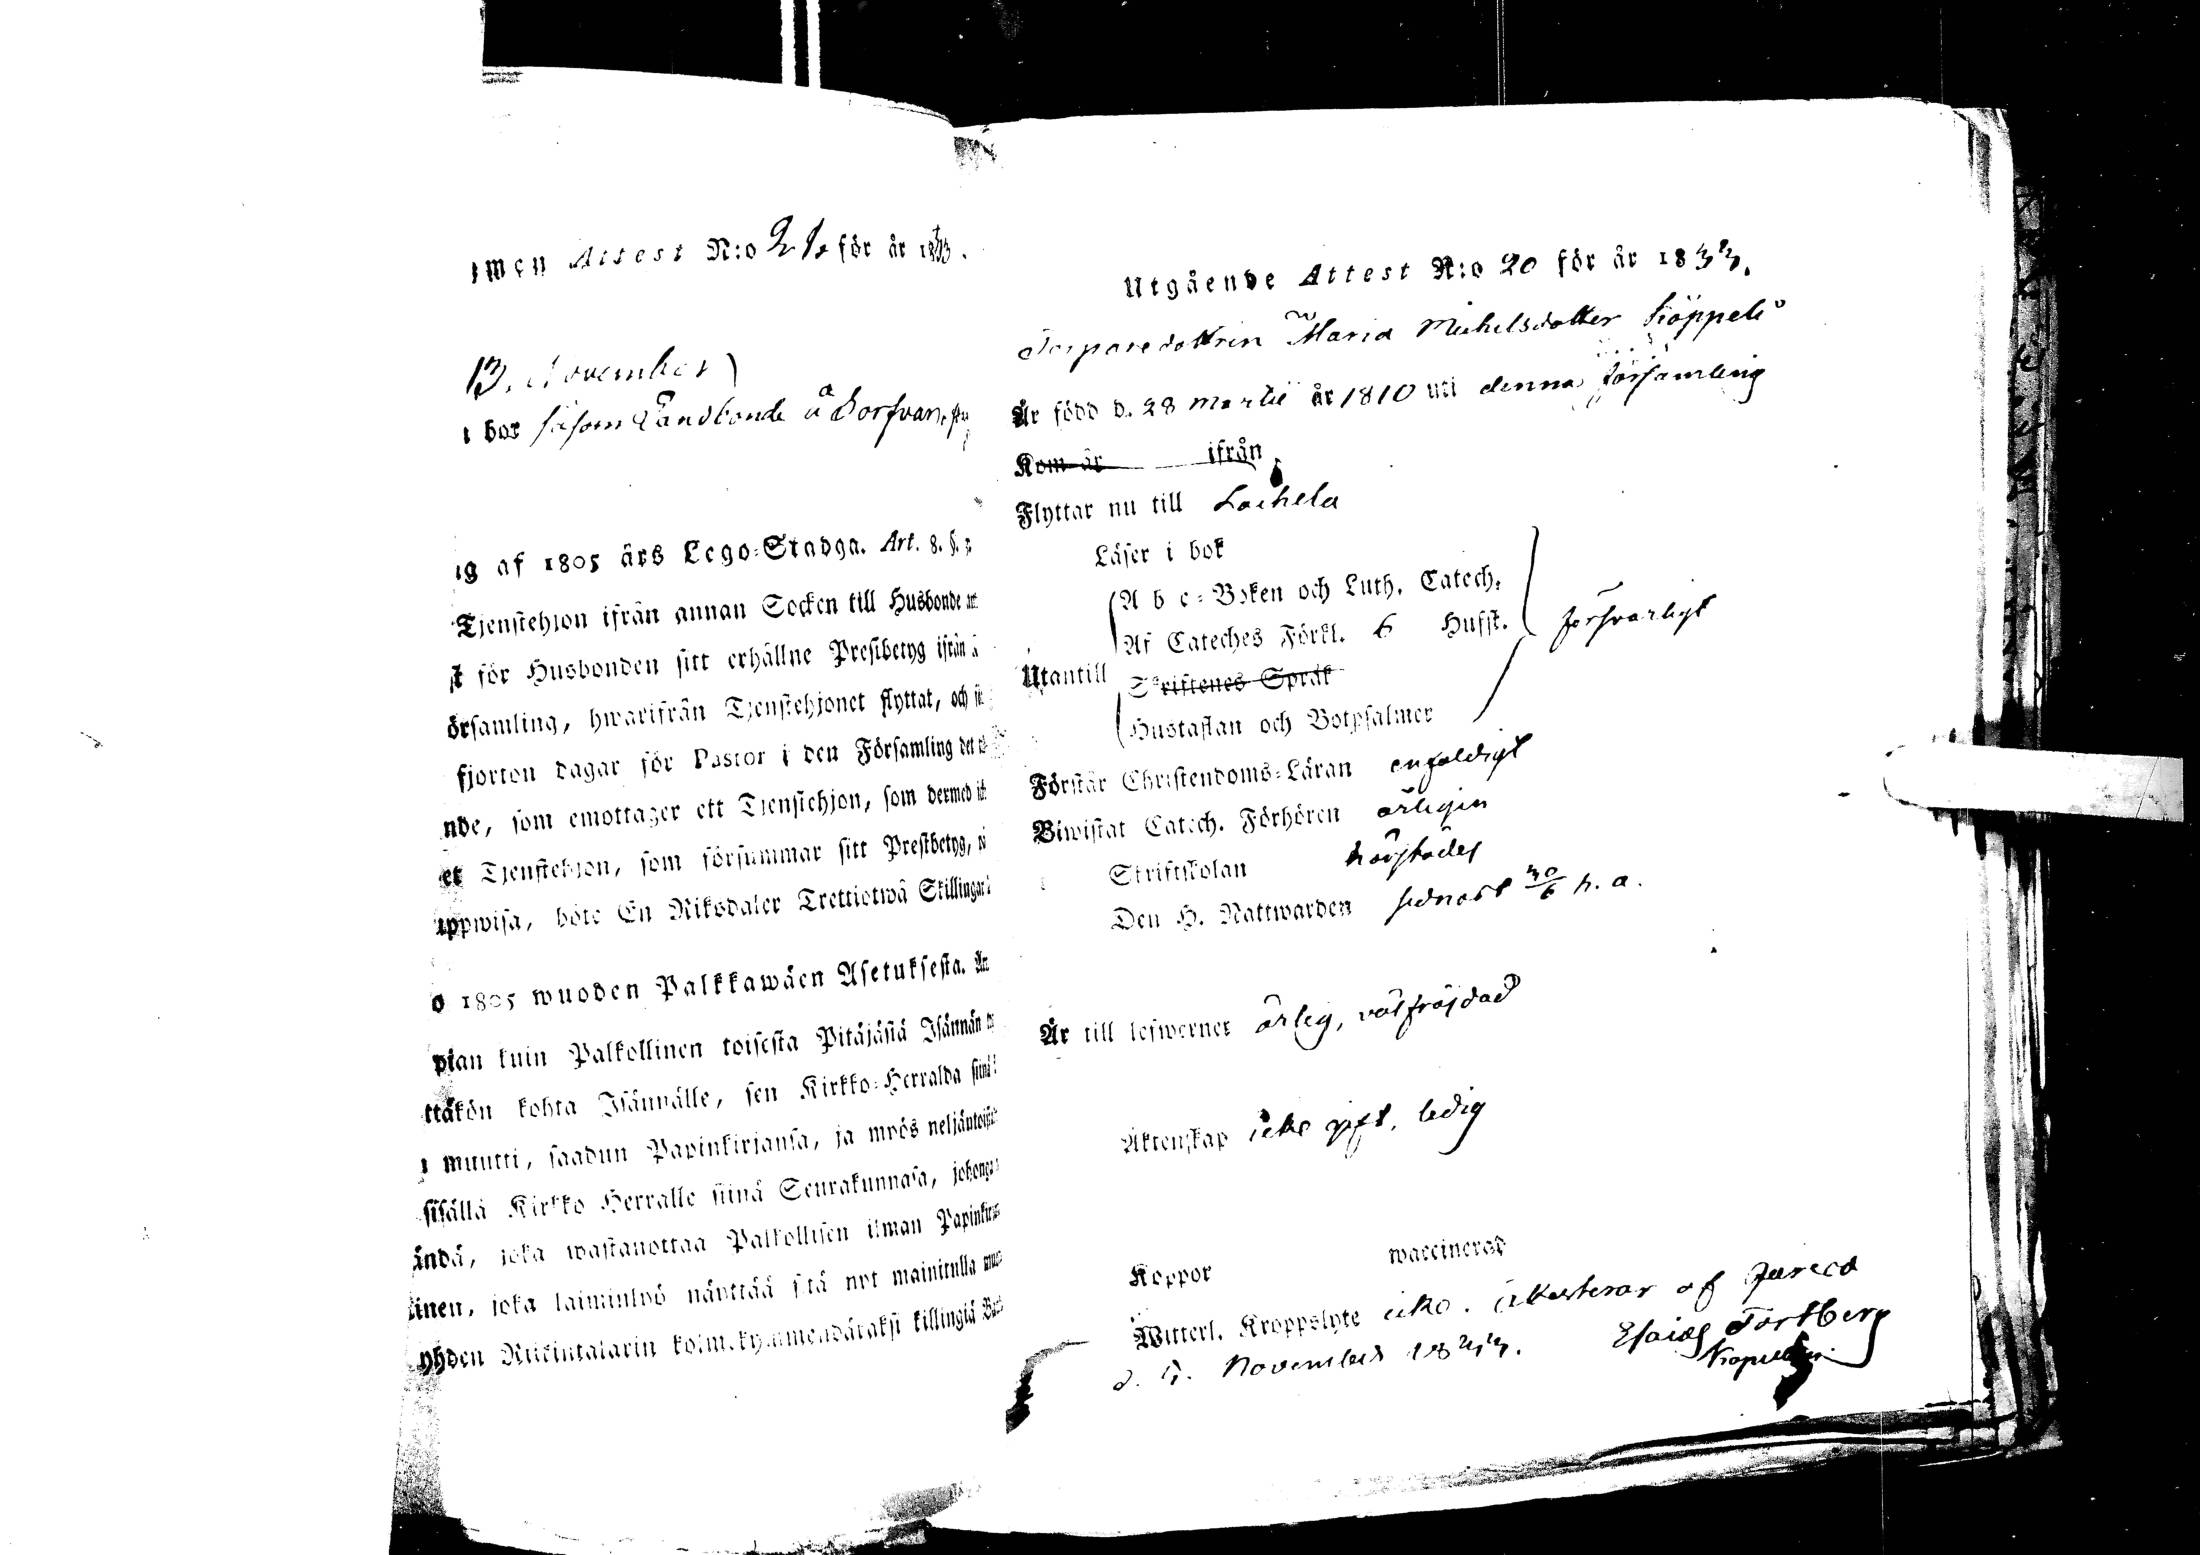 Attest N:o 21 för år 1833.
13. November
bor såsom Landbonde å
af 1805 års Lego-Stadga. Art. 8. §.
Tjenstehjon ifrån annan Socken till Husbonde
för Husbonden sitt erhållne Prestbetyg ifrån
örsamling, hwarifrån Tjenstehjonet flyttat, och
fjorton dagar för Pastor i den Församling det
nde, som emottager ett Tjenstehjon, som dermed
et Tjenstehjon, som försummar sitt Prestbetyg,
uppwisa, böte En Riksdaler Trettiotwå Skillingar
o 1805 wuoden Palkkawäen Asetuksesta.
pian kuin Palkollinen toisesta Pitäjästä Isännän
ttäkön kohta Isännälle, sen Kirkko-Herralda siinä
muutti, saadun Papinkirjansa, ja myös neljäntoista
sisällä Kirkko Herralle siinä Seurakunnasa, johonga
ändä, joka wastanottaa Palkollisen ilman Papinkirja
inen, joka laiminlyö näyttää sitä nyt mainitulla
yhden Riikintalarin kolmekymmendäkaksi killingiä
Utgående Attest N:o 20 för år 1833.
Torparedottren Maria Michelsdotter Köppeli
Är född d. 28 Martii år 1810 uti denna församling
Kom år ifrån
Flyttar nu till Laihela
Läser i bok
A b c-Boken och Luth. Catech.
Af Cateches Förkl. 6 Hufst. försvarligt
Utantill
Skriftenes Språk
Hustaflan och Botpsalmer
Förstår Christendoms-Läran enfaldigt
Biwistat Catech. Förhören årligen
Skriftskolan
Den H. Nattwarden sednast 30/6 h. a.
Är till lefwernet ärlig, välfräjdad
Äktenskap icke gift, ledig
Koppor waccinerad
Witterl. Kroppslyte icke. Attesterar af
d. November 1833. Esaias